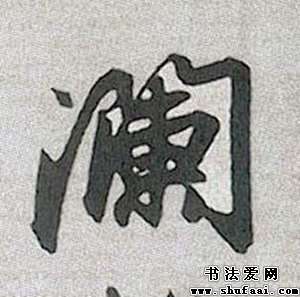 澜
书法爱网
www.shufaai.com